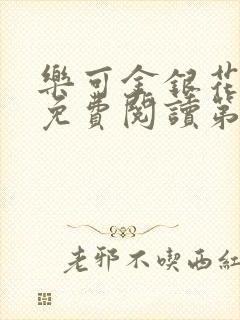 樂可金銀花
免費閱讀第
老邪不喫西紅